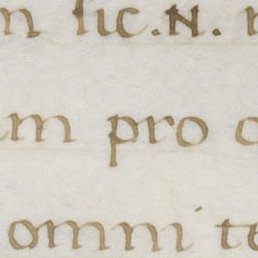 sic .N.
am pro
omni te